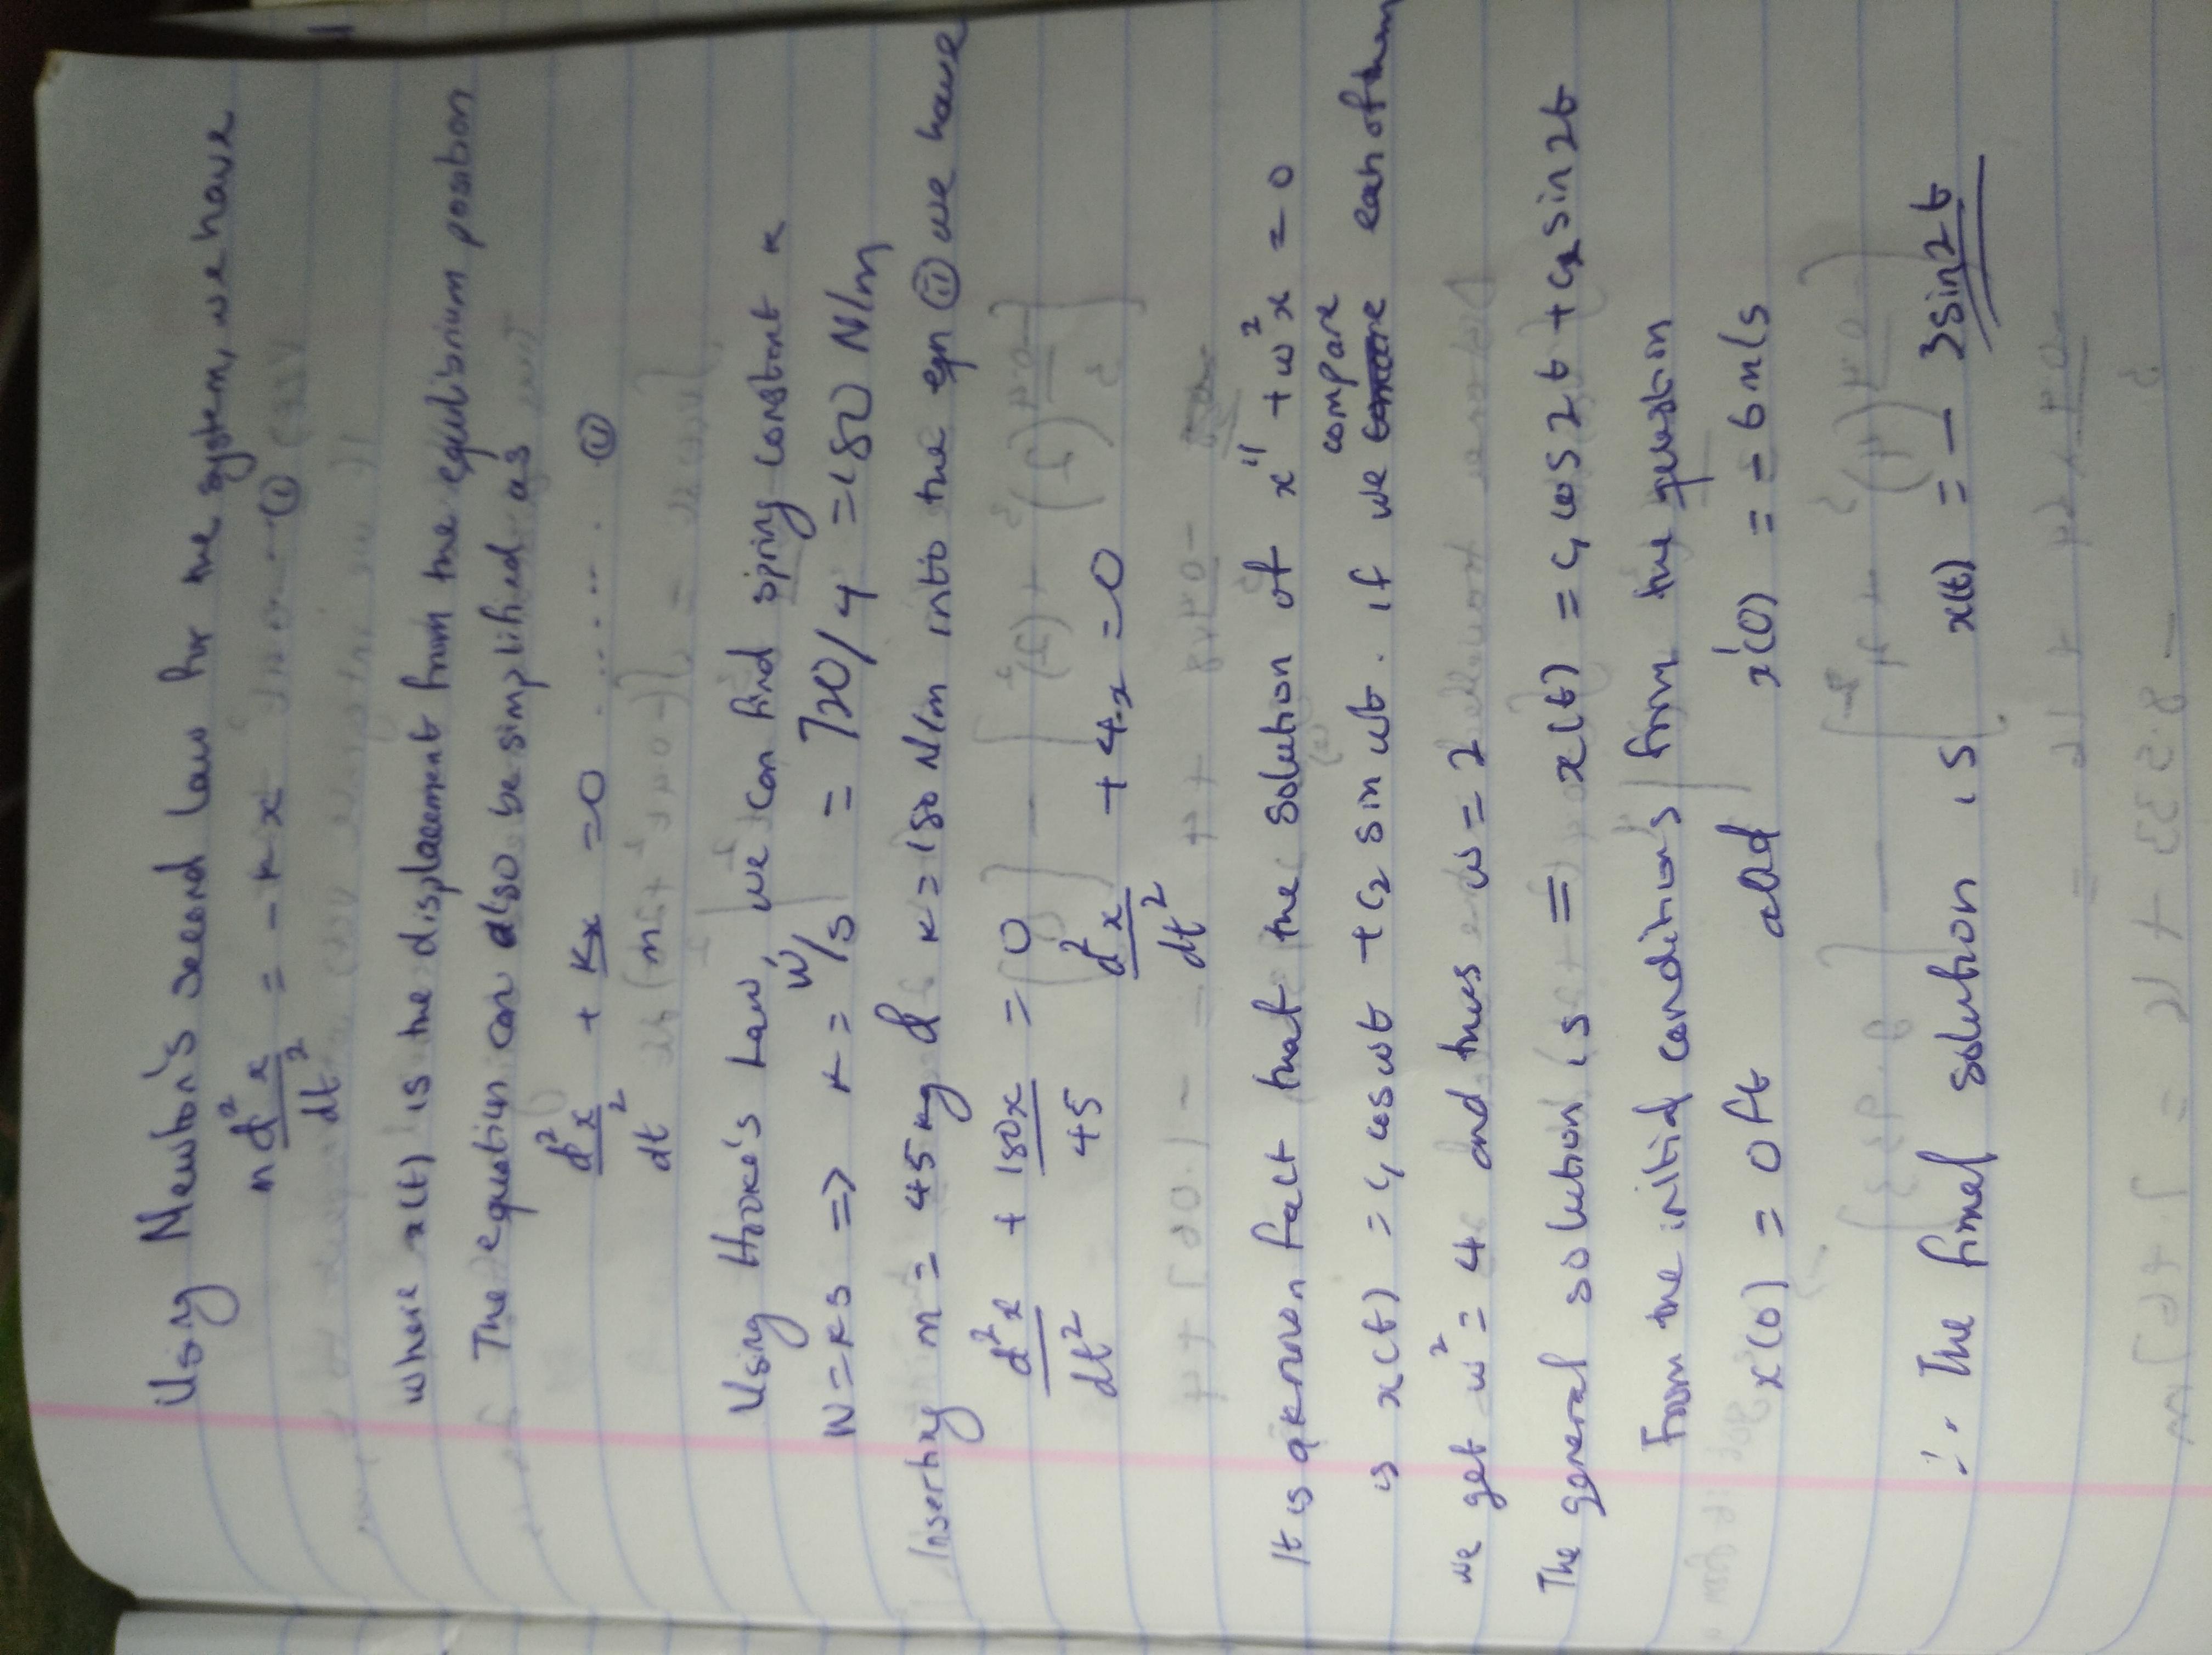 Using Newton's second law for the system, we have
m d²x/dt² = -kx ---- (i)
where x(t) is the displacement from the equilibrium position
The equation can also be simplified as
d²x/dt² + kx = 0 ........ (ii)
Using Hooke's Law, we can find spring constant k
W = ks => k = W/s = 720/4 = 180 N/m
Inserting m = 45 kg & k = 180 N/m into the eqn (ii) we have
d²x/dt² + 180x/45 = 0
d²x/dt² + 4x = 0
It is a known fact that the solution of x'' + w²x = 0
is x(t) = c₁ cos wt + c₂ sin wt. if we compare each of them
we get w² = 4 and thus w = 2
The general solution is = x(t) = c₁ cos 2t + c₂ sin 2t
From the initial conditions from the question
x(0) = 0 ft and x'(0) = -6 m/s
∴ The final solution is x(t) = - 3 sin 2t